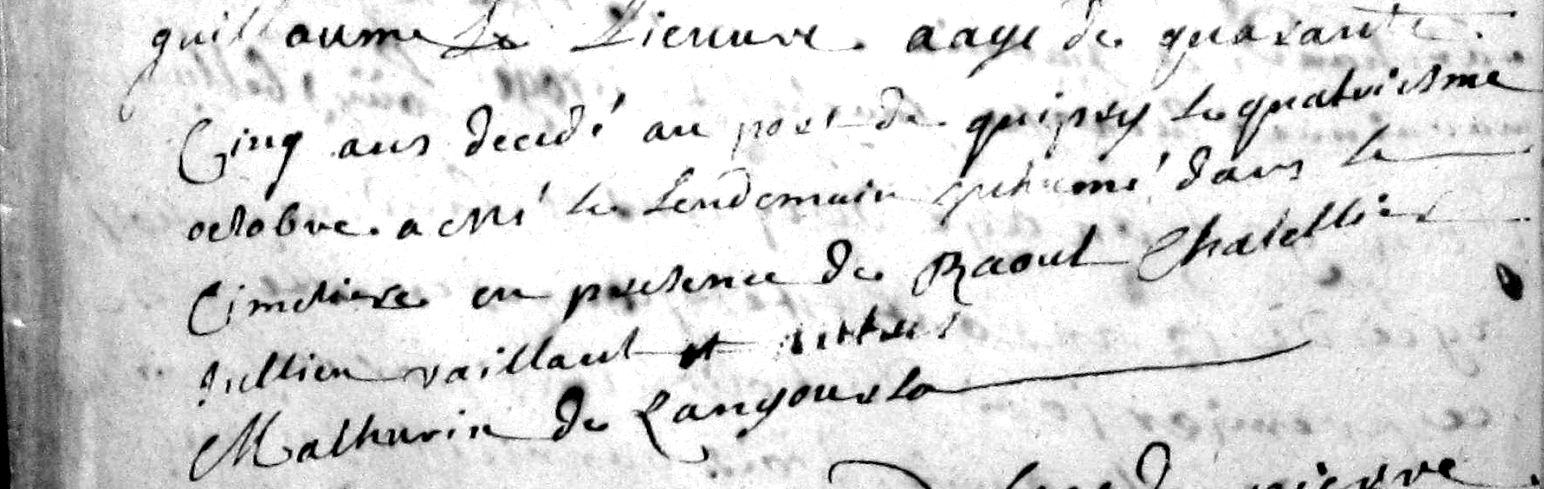 guillaume Le Lieuure aagé de quarante
Cinq ans decedé au port de quipry le quatriesme
octobre a esté le Lendemain inhumé dans le
Cimetiere en presence de Raoul Chatellier
Jullien vaillant et autres
Mathurin de Langourla
pierre